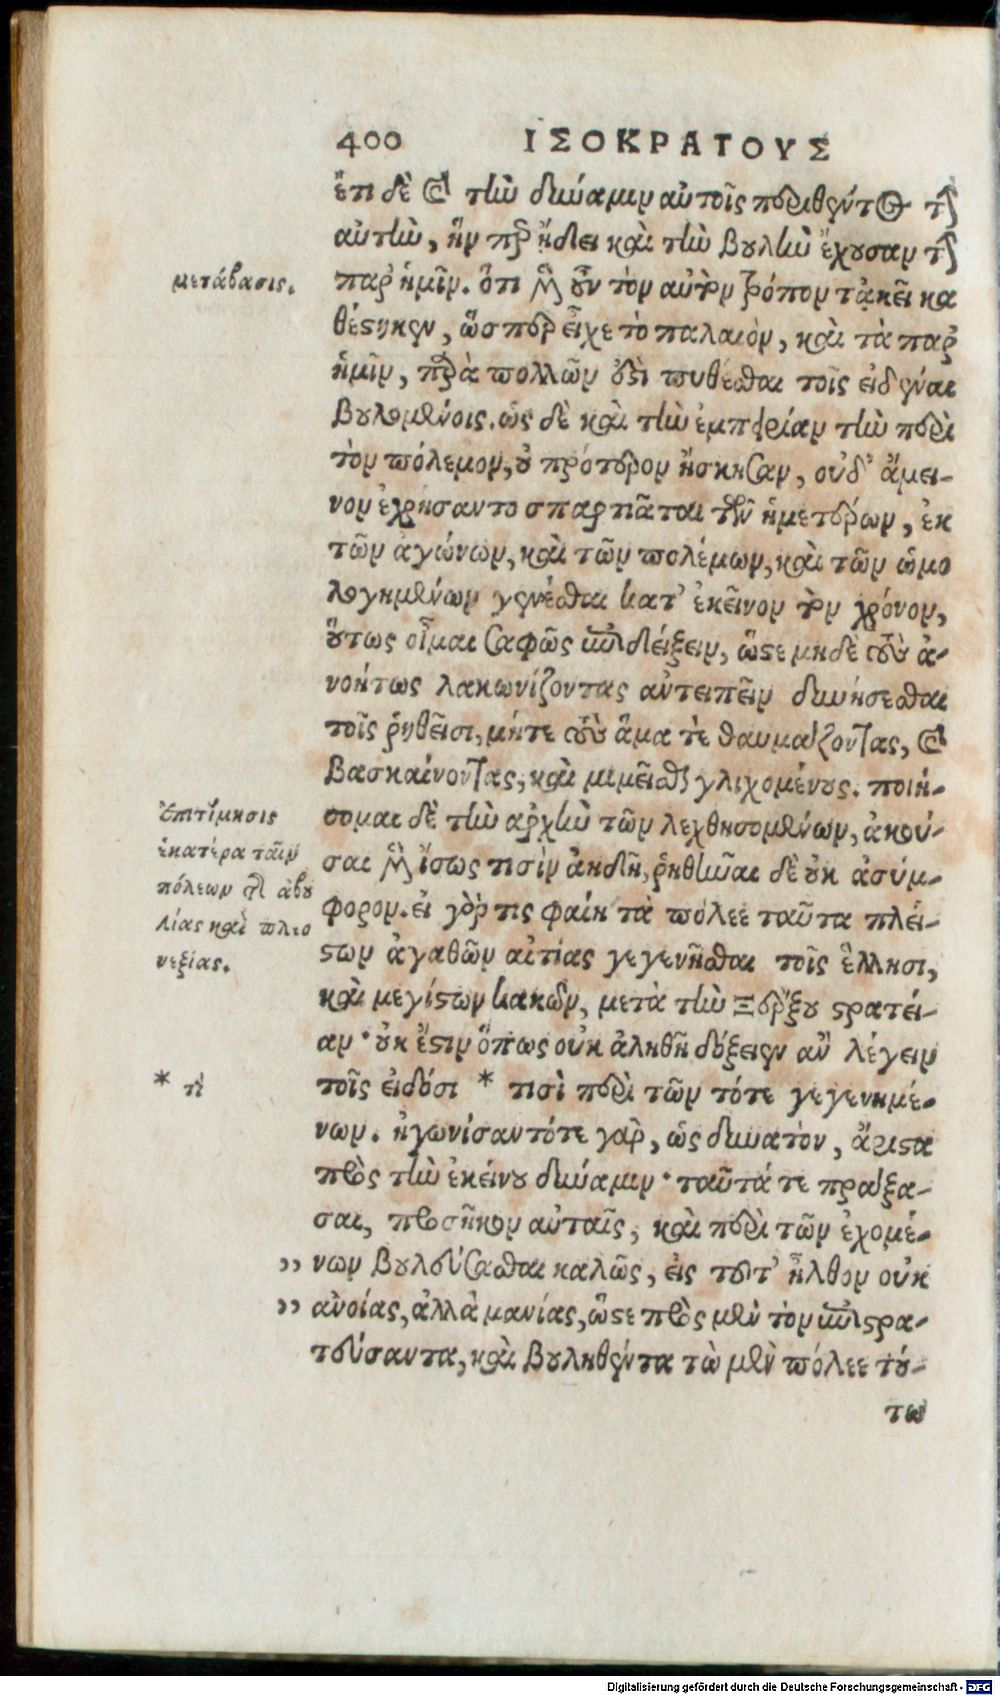 400 ΙΣΟΚΡΑΤΟΥΣ
ἔτι δὲ καὶ τὴν δύναμιν αὐτοῖς περιθέντος τὴν
αὐτὴν, ἣν περ ᾔδει καὶ τὴν βουλὴν ἔχουσαν τὴν
μετάβασις.
παρ' ἡμῖν. ὅτι μὲν οὖν τὸν αὐτὸν τρόπον τἀκεῖ κα
θέστηκεν, ὥσπερ εἶχε τὸ παλαιὸν, καὶ τὰ παρ'
ἡμῖν, παρὰ πολλῶν ἐστὶ πυθέσθαι τοῖς εἰδέναι
βουλομένοις. ὡς δὲ καὶ τὴν ἐμπειρίαν τὴν περὶ
τὸν πόλεμον, οὐ πρότερον ἤσκησαν, οὐδ' ἄμει-
νον ἐχρήσαντο σπαρτιᾶται τῶν ἡμετέρων, ἐκ
τῶν ἀγώνων, καὶ τῶν πολέμων, καὶ τῶν ὡμο
λογημένων γενέσθαι κατ' ἐκεῖνον τὸν χρόνον,
οὕτως οἶμαι σαφῶς ἐπιδείξειν, ὥστε μηδὲ τοὺς ἀ-
νοήτως λακωνίζοντας ἀντειπεῖν δυνήσεσθαι
τοῖς ῥηθεῖσι, μήτε τοὺς ἅμα τε θαυμάζοντας, καὶ
βασκαίνοντας, καὶ μιμεῖσθαι γλιχομένους. ποιή-
σομαι δὲ τὴν ἀρχὴν τῶν λεχθησομένων, ἀκοῦ-
Ἐπιτίμησις
ἑκατέρα ταῖν
πόλεων περὶ ἀβου
λίας καὶ πλεο
νεξίας.
σαι μὲν ἴσως τισὶν ἀηδῆ, ῥηθῆναι δὲ οὐκ ἀσύμ-
φορον. εἰ γάρ τις φαίη τὰ πόλεε ταῦτα πλεί-
στων ἀγαθῶν αἰτίας γεγενῆσθαι τοῖς ἕλλησι,
καὶ μεγίστων κακῶν, μετὰ τὴν Ξέρξου στρατεί-
αν· οὐκ ἔστιν ὅπως οὐκ ἀληθῆ δόξειεν ἂν λέγειν
* τὶ
τοῖς εἰδόσι * τισὶ περὶ τῶν τότε γεγενημέ-
νων. ἠγωνίσαντότε γὰρ, ὡς δυνατὸν, ἄριστα
πρὸς τὴν ἐκείνου δύναμιν· ταῦτά τε πράξα-
σαι, προσῆκον αὐταῖς, καὶ περὶ τῶν ἐχομέ-
" νων βουλεύσασθαι καλῶς, εἰς τοῦτ' ἦλθον οὐκ
" ἀνοίας, ἀλλὰ μανίας, ὥστε πρὸς μὲν τὸν ἐπιστρα-
τεύσαντα, καὶ βουληθέντα τὼ μὲν πόλεε τού-
τω
Digitalisierung gefördert durch die Deutsche Forschungsgemeinschaft - DFG